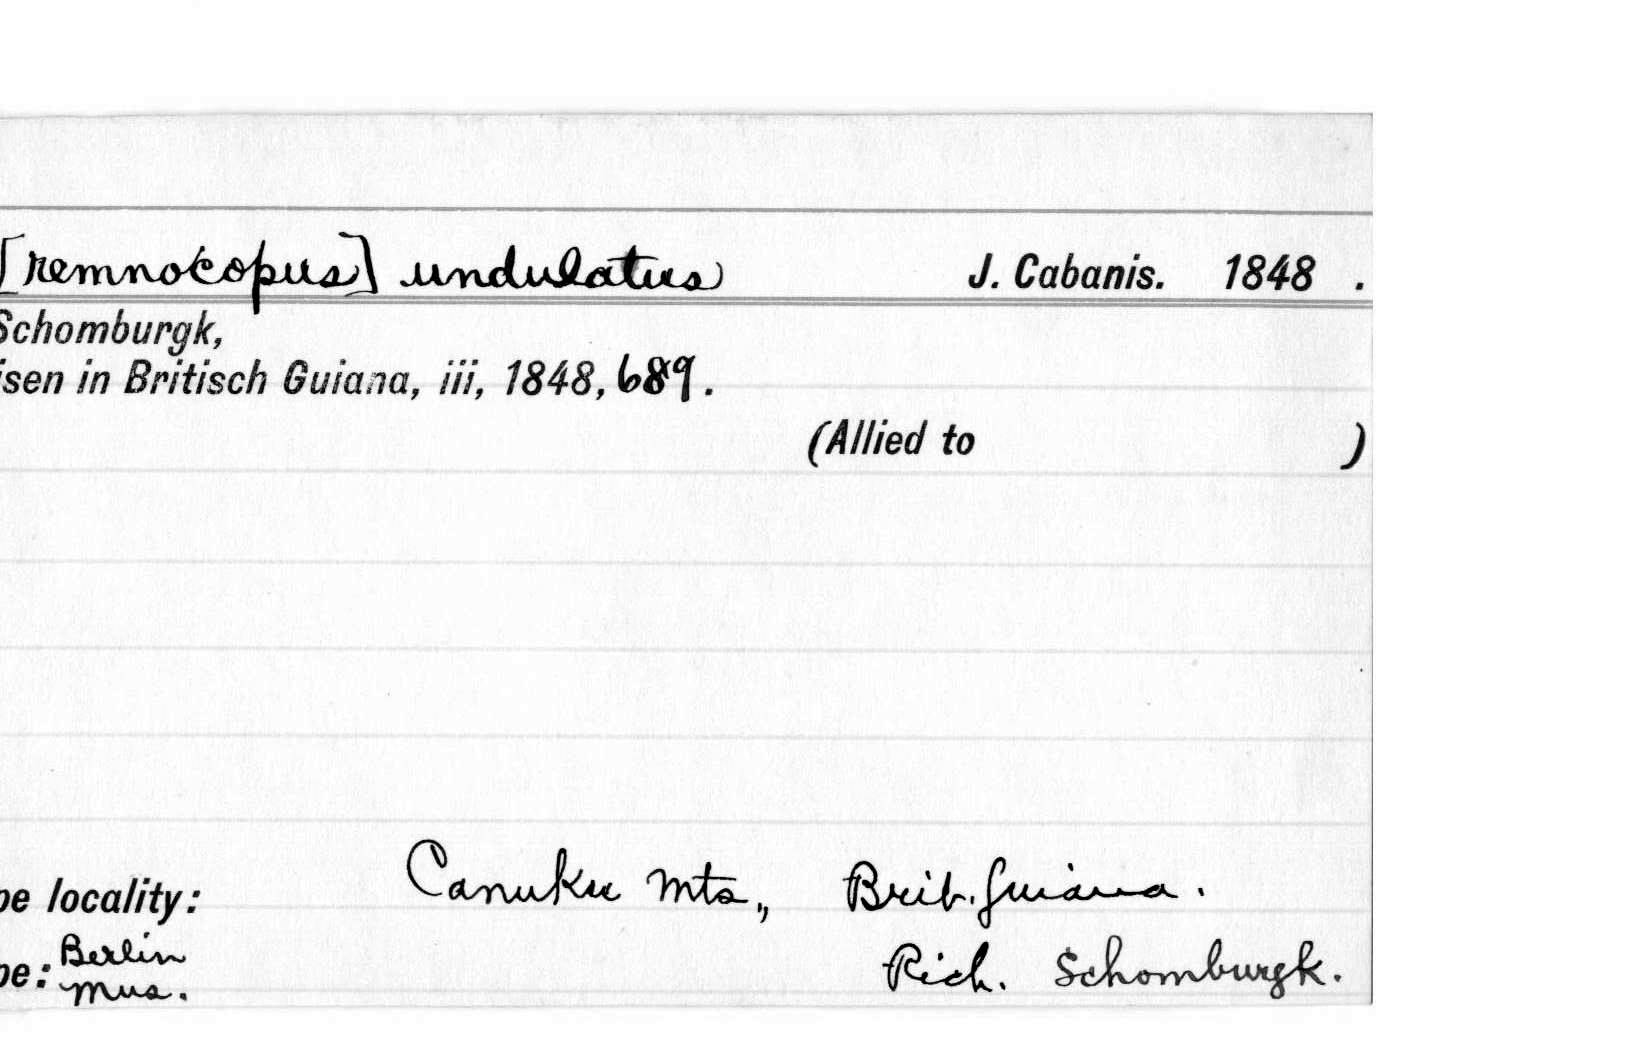 [remnocopus] undulatus J. Cabanis. 1848 .
Schomburgk,
isen in Britisch Guiana, iii, 1848, 689.
(Allied to )
pe locality: Canuku Mts., Brit. Guiana.
pe: Berlin Mus. Rich. Schomburgk.